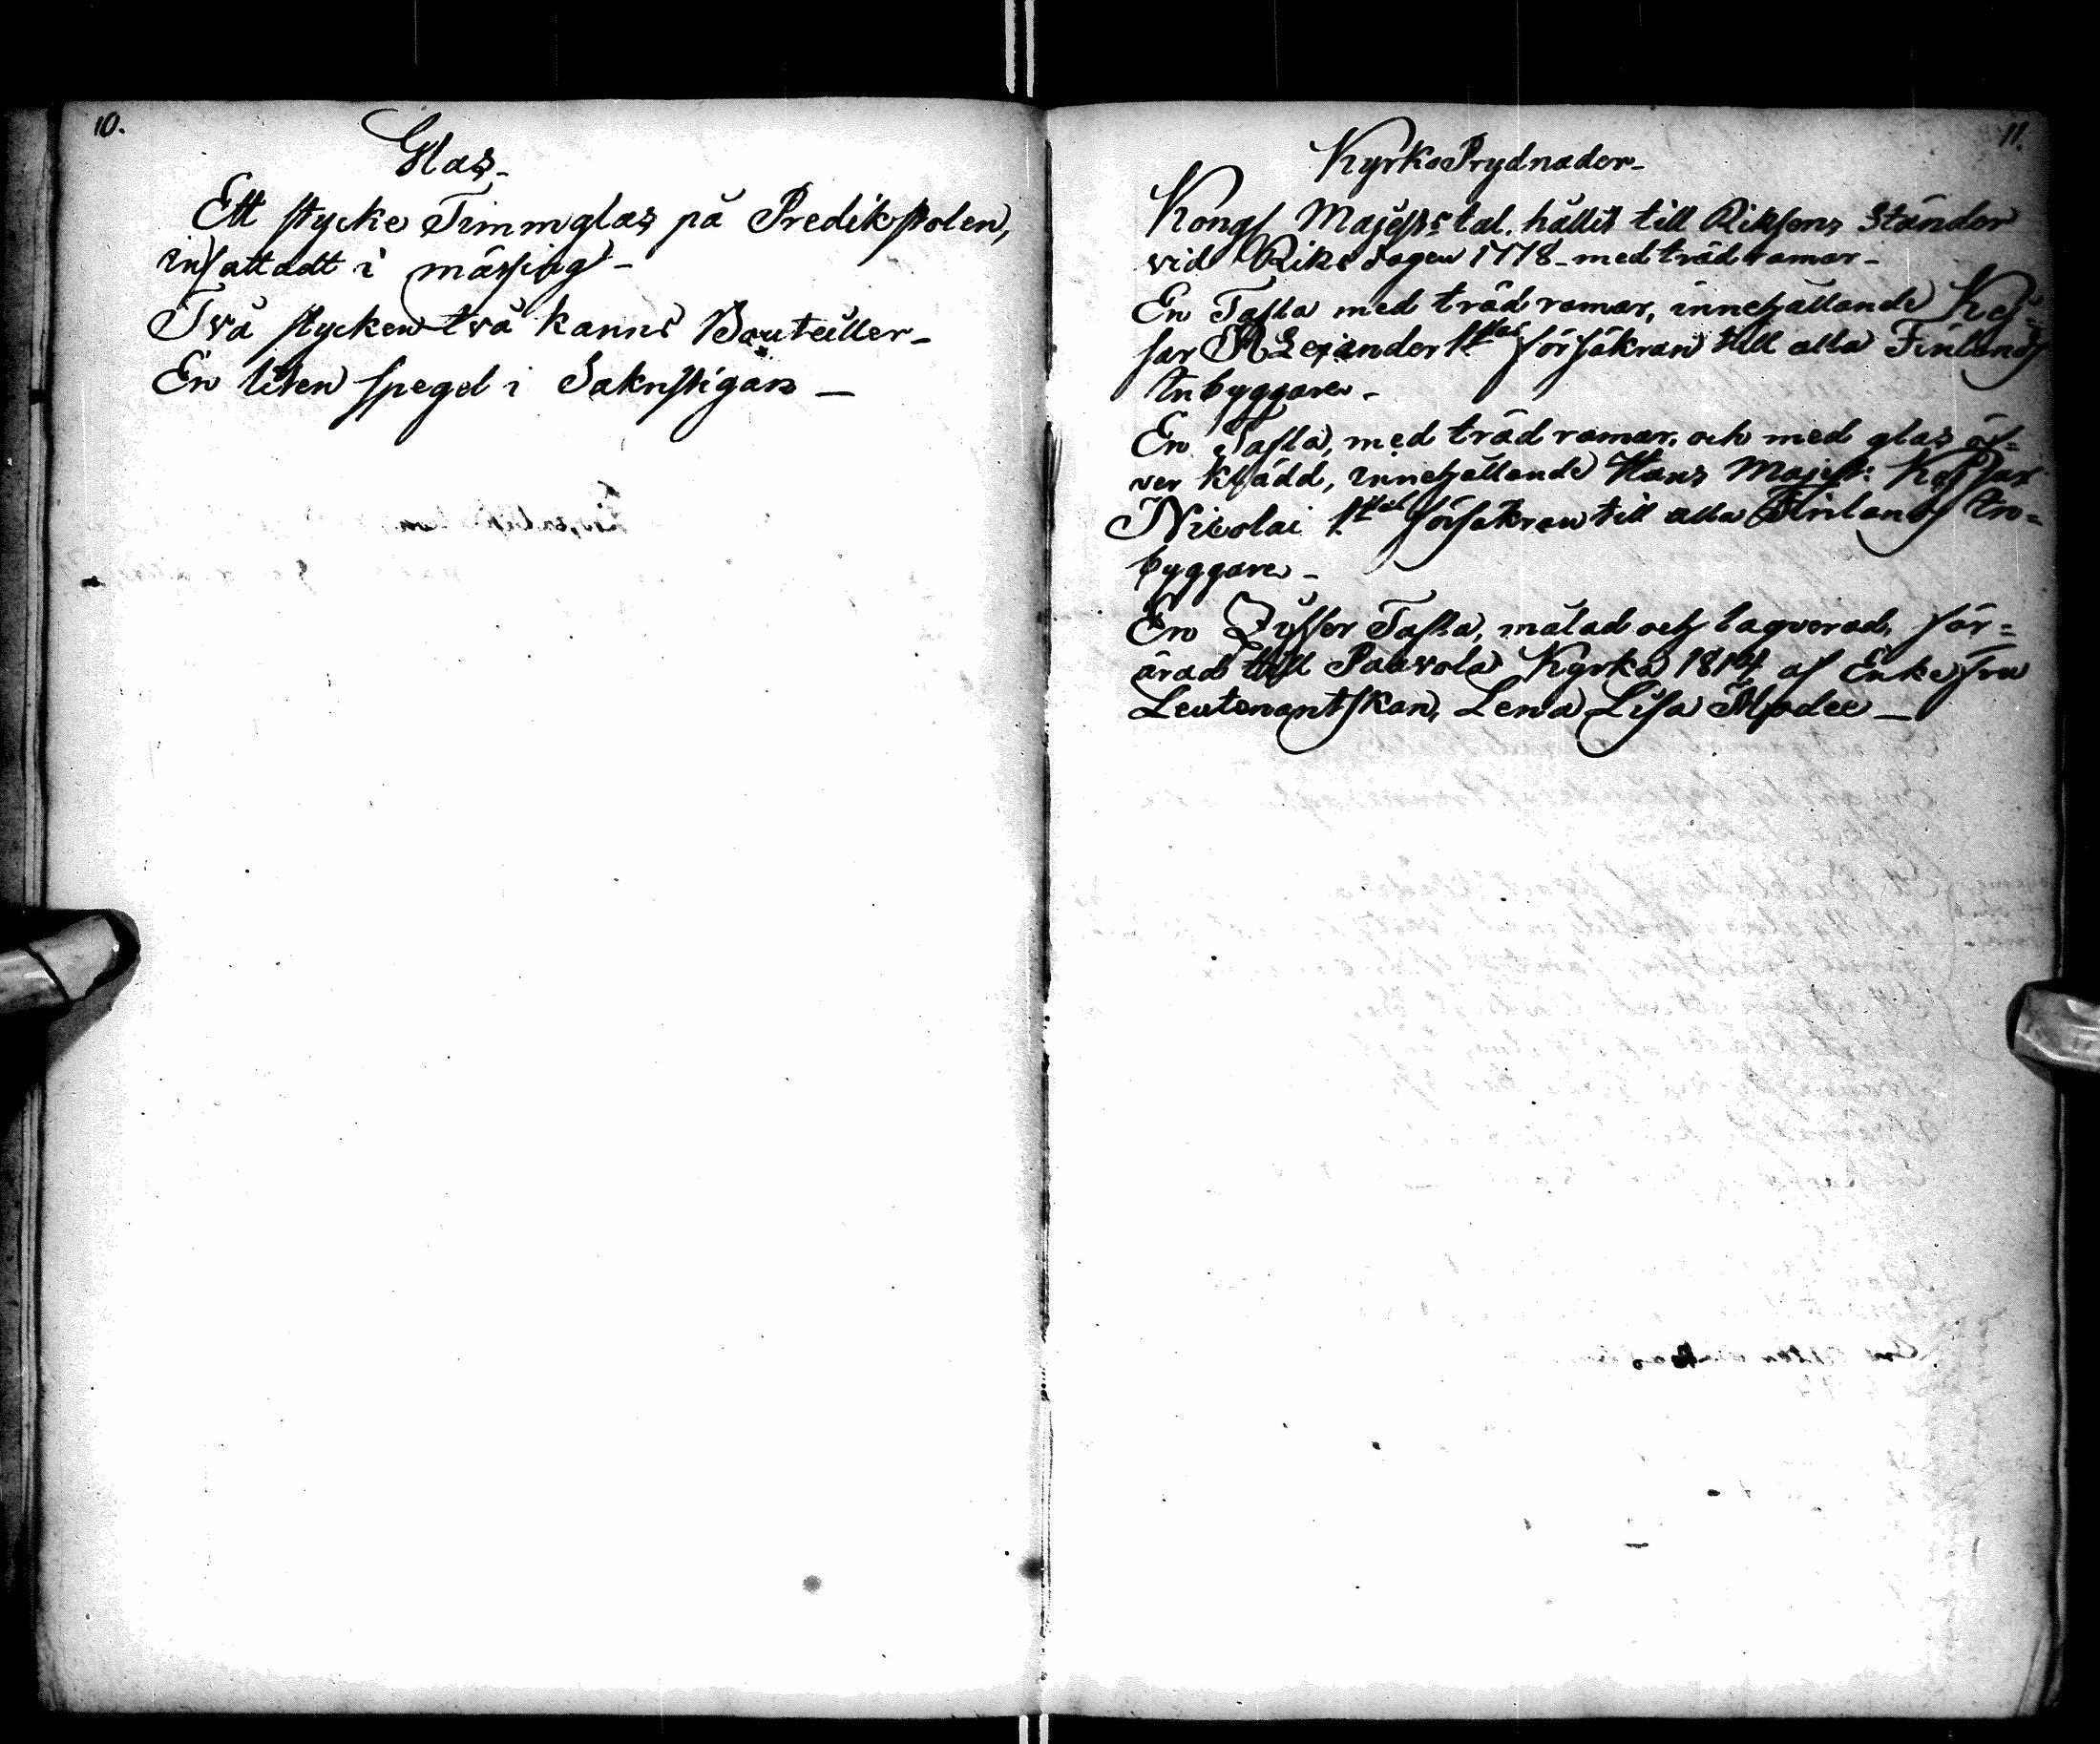 10.
Glas_
Ett stycke Timmglas på Predikstolen,
insattadt i mässing_
Två stycken två kanns Bouteiller_
En liten spegel i Sakristigan_
11.
KyrkoPrydnader_
Kongl MajesTs tal. hållit till Riksens Ständer
vid Riksdagen 1778_med träd ramar_
En Tafla med träd ramar, innehållande Kej=
sar Alexander 1stas försäkran till alla Finlands
Inbyggare_
En Tafla, med träd ramar, och med glas öf=
ver klädd, innehållande Hans Majest: Kejsar
Nicolai 1stas försäkran till alla Finlands In=
byggare_
En Ziffer Tafla, målad och laqverad, för=
ärad till Paavola Kyrka 1814 af Enke fru
Leutenantskan, Lena Lisa Modee_